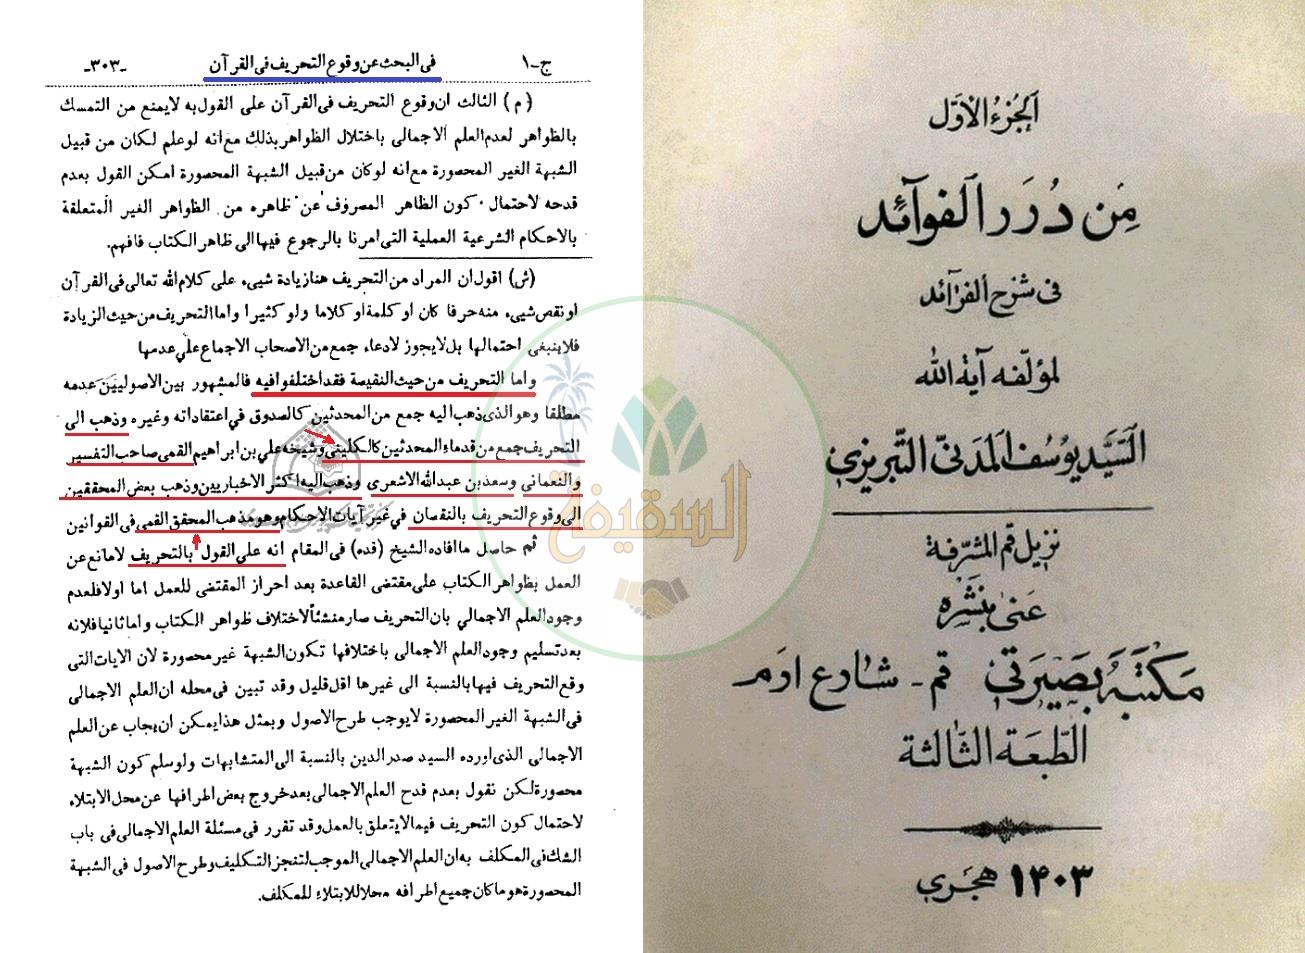 ج-١
في البحث عن وقوع التحريف في القرآن
-٣٠٣-
(م) الثالث ان وقوع التحريف في القرآن على القول به لا يمنع من التمسك
بالظواهر لعدم العلم الاجمالى باختلال الظواهر بذلك مع انه لو علم لكان من قبيل
الشبهة الغير المحصورة مع انه لو كان من قبيل الشبهة المحصورة امكن القول بعدم
قدحه لاحتمال كون الظاهر المصروف عن ظاهره من الظواهر الغير المتعلقة
بالاحكام الشرعية العملية التي امرنا بالرجوع فيها الى ظاهر الكتاب فافهم.
(ش) اقول ان المراد من التحريف هنا زيادة شيء على كلام الله تعالى في القرآن
او نقص شيء منه حرفا كان او كلمة او كلاما ولو كثيرا واما التحريف من حيث الزيادة
فلا ينبغى احتمالها بل لا يجوز لادعاء جمع من الاصحاب الاجماع على عدمها
واما التحريف من حيث النقيصة فقد اختلفوا فيه فالمشهور بين الاصوليين عدمه
مطلقا وهو الذى ذهب اليه جمع من المحدثين كالصدوق في اعتقاداته وغيره وذهب الى
التحريف جمع من قدماء المحدثين كالكلينى وشيخه علي بن ابراهيم القمى صاحب التفسير
والنعمانى وسعد بن عبد الله الاشعرى وذهب اليه اكثر الاخباريين وذهب بعض المحققين
الى وقوع التحريف بالنقصان في غير آيات الاحكام وهو مذهب المحقق القمى في القوانين
ثم حاصل ما افاده الشيخ (قده) في المقام انه على القول بالتحريف لا مانع عن
العمل بظواهر الكتاب على مقتضى القاعدة بعد احراز المقتضى للعمل اما اولا فلعدم
وجود العلم الاجمالي بان التحريف صار منشئاً لاختلاف ظواهر الكتاب واما ثانيا فلانه
بعد تسليم وجود العلم الاجمالى باختلافها تكون الشبهة غير محصورة لان الايات التى
وقع التحريف فيها بالنسبة الى غيرها اقل قليل وقد تبين في محله ان العلم الاجمالى
في الشبهة الغير المحصورة لا يوجب طرح الاصول وبمثل هذا يمكن ان يجاب عن العلم
الاجمالى الذى اورده السيد صدر الدين بالنسبة الى المتشابهات ولو سلم كون الشبهة
محصورة لكن نقول بعدم قدح العلم الاجمالى بعد خروج بعض اطرافها عن محل الابتلاء
لاحتمال كون التحريف فيما لا يتعلق بالعمل وقد تقرر في مسئلة العلم الاجمالى في باب
الشك في المكلف به ان العلم الاجمالى الموجب لتنجز التكليف وطرح الاصول في الشبهة
المحصورة هو ما كان جميع اطرافه محلا للابتلاء للمكلف.
الجزء الاول
من درر الفوائد
في شرح الفرائد
لمؤلفه آية الله
السيد يوسف المدني التبريزي
نزيل قم المشرفة
عنى بنشره
مكتبة بصيرتي قم - شارع ارم
الطبعة الثالثة
١٤٠٣ هجري
السقيفة